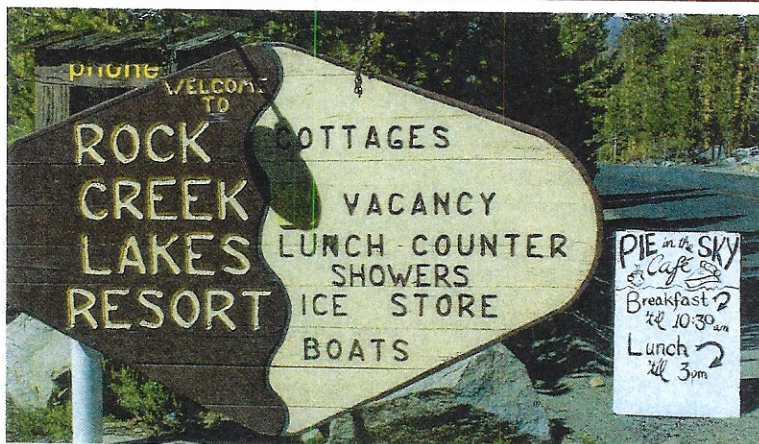 phone
WELCOME
TO
ROCK
CREEK
LAKES
RESORT
COTTAGES
VACANCY
LUNCH COUNTER
SHOWERS
ICE STORE
BOATS
PIE in the SKY
Café
Breakfast
'til 10:30 am
Lunch
'til 3pm